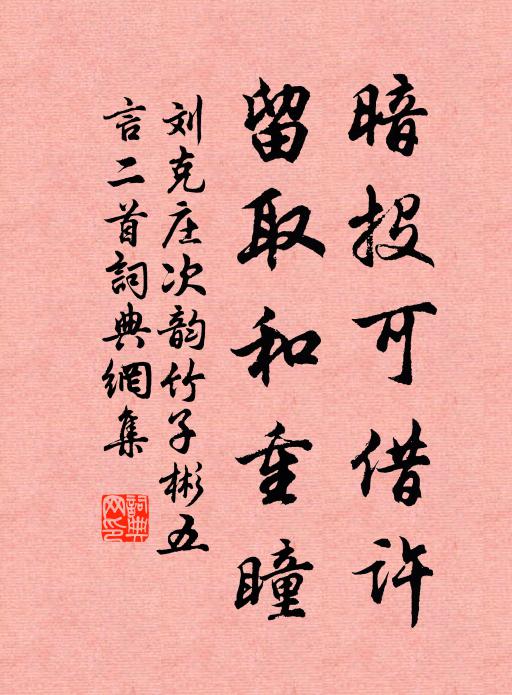 暗投可借许
留取和重瞳
刘克庄次韵竹子彬五
言二首詞典網集
詞典
网印